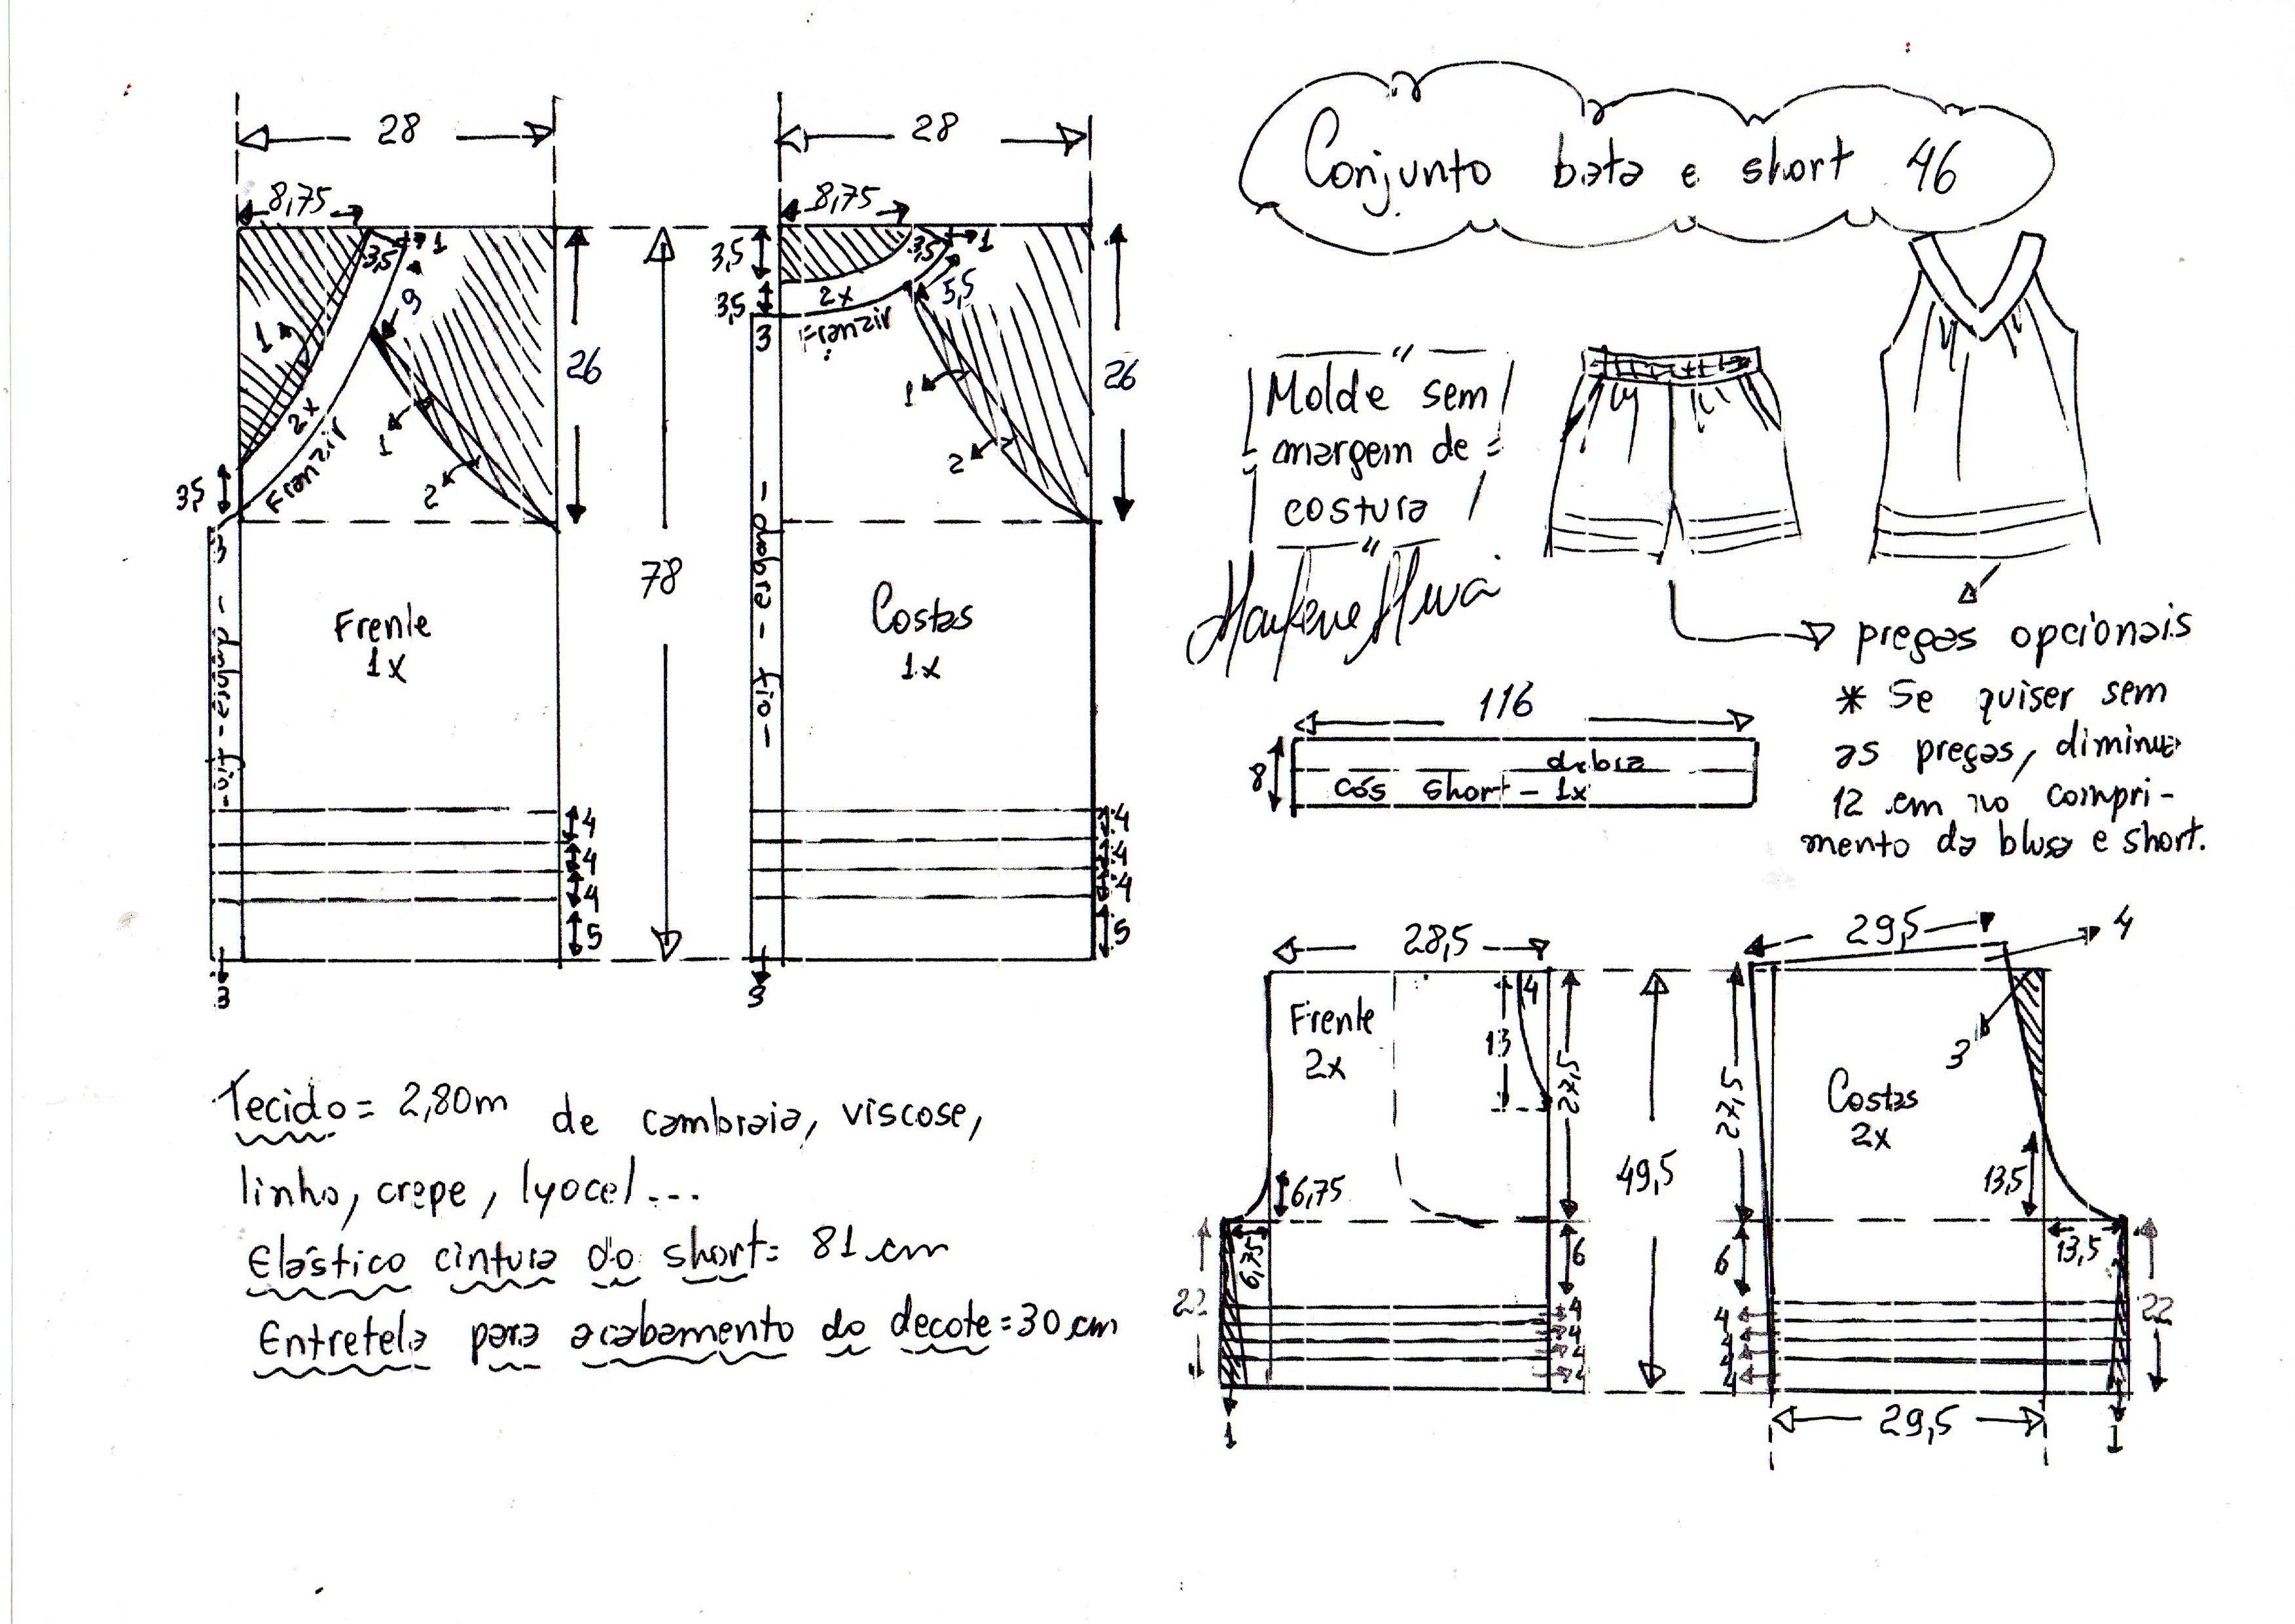 Conjunto bata e short 46
28
28
8,75
8,75
3,5
1
3,5
3,5
1
3,5
9
5,5
1
2x
Franzir
1
2
3,5
3
26
2x
Franzir
3
1
2
26
78
- dobra - fio -
- dobra - fio -
Frente
1x
Costas
1x
4
4
4
5
4
4
4
5
3
3
"
Molde sem
margem de
costura
"
pregas opcionais
* Se quiser sem
as pregas, diminua
12 cm no compri-
mento da blusa e short.
116
8
dobra
cós short - 1x
Tecido = 2,80m de cambraia, viscose,
linho, crepe, lyocel...
Elástico cintura do short = 81 cm
Entretela para acabamento do decote = 30 cm
28,5
4
13
Frente
2x
27,5
6,75
6,75
22
6
4
4
4
4
1
49,5
29,5
4
3
27,5
Costas
2x
13,5
13,5
6
4
4
4
4
22
1
29,5